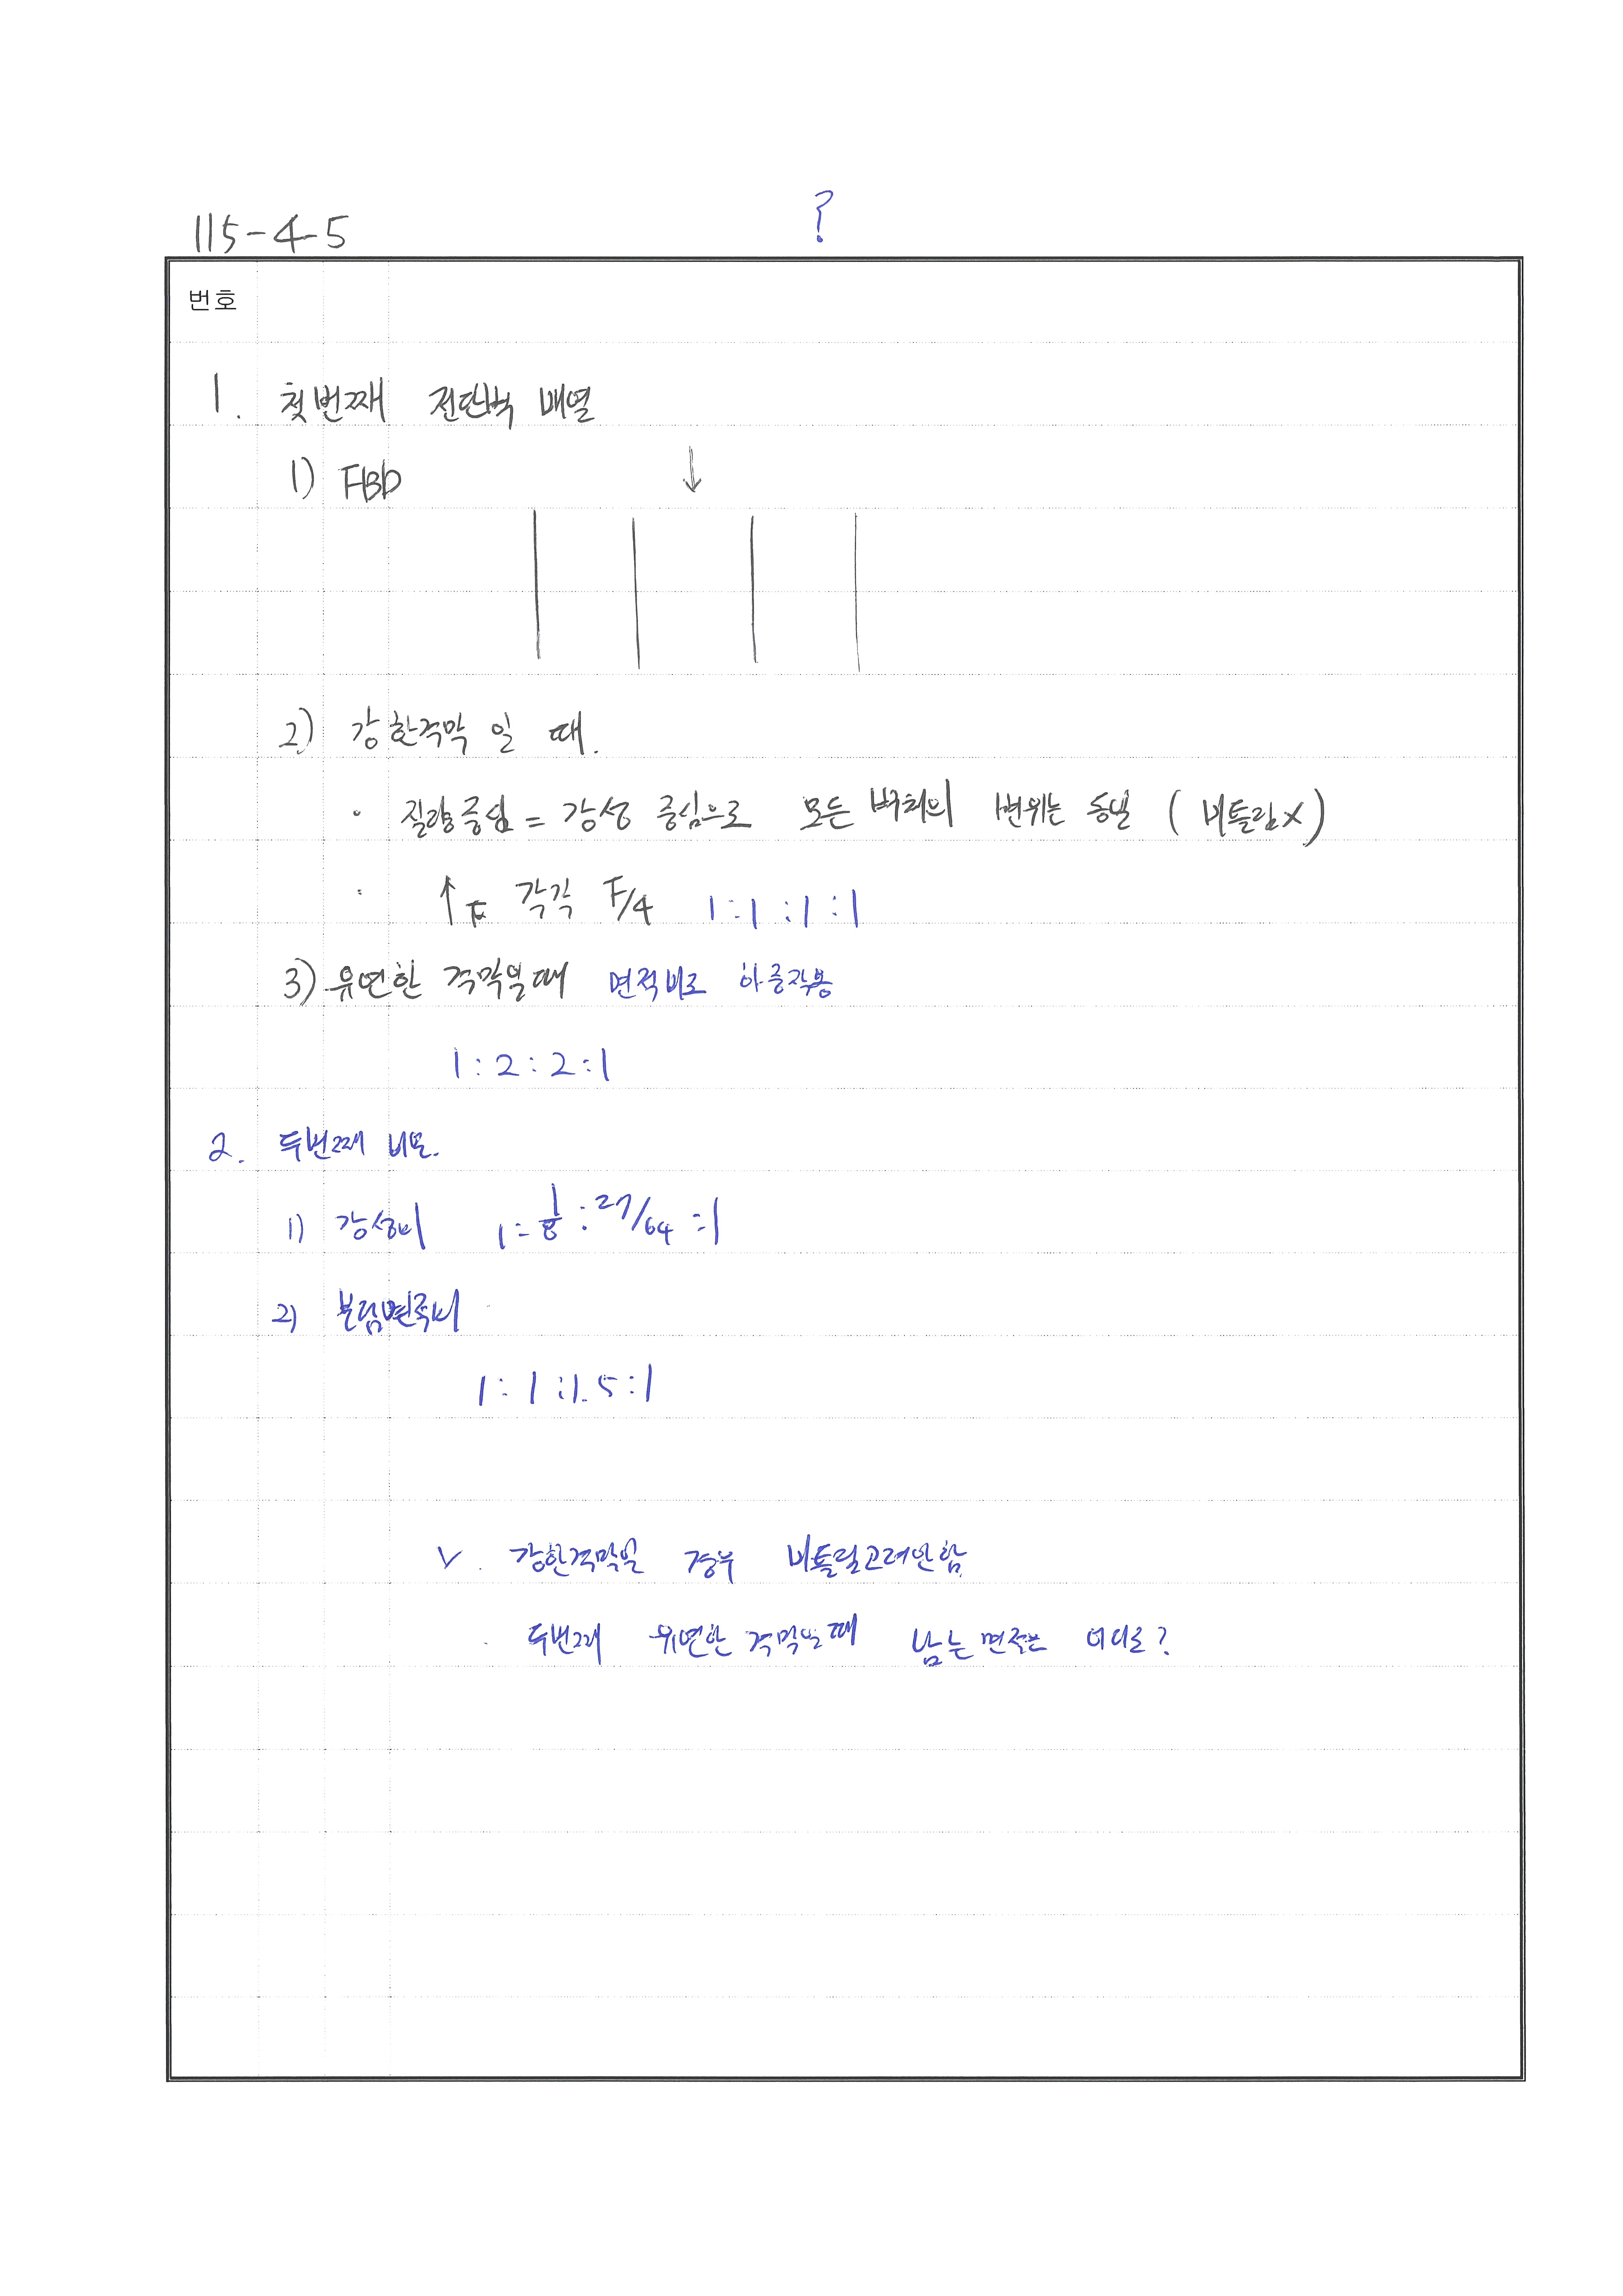 115-4-5
?
번호
1. 첫번째 전단벽 배열
1) FBD
2) 강한격막 일 때.
· 질량중심 = 강성 중심으로 모든 벽체의 변위는 동일 ( 비틀림X )
· ↑F 각각 F/4 1:1:1:1
3) 유연한 격막일때 면적비로 하중작용
1:2:2:1
2. 두번째
1) 강성비 1:1/8:27/64:1
2) 분담면적비
1:1:1.5:1
√. 강한격막일 경우 비틀림고려안함
· 두번째 유연한 격막일때 남는면적은 어디로?